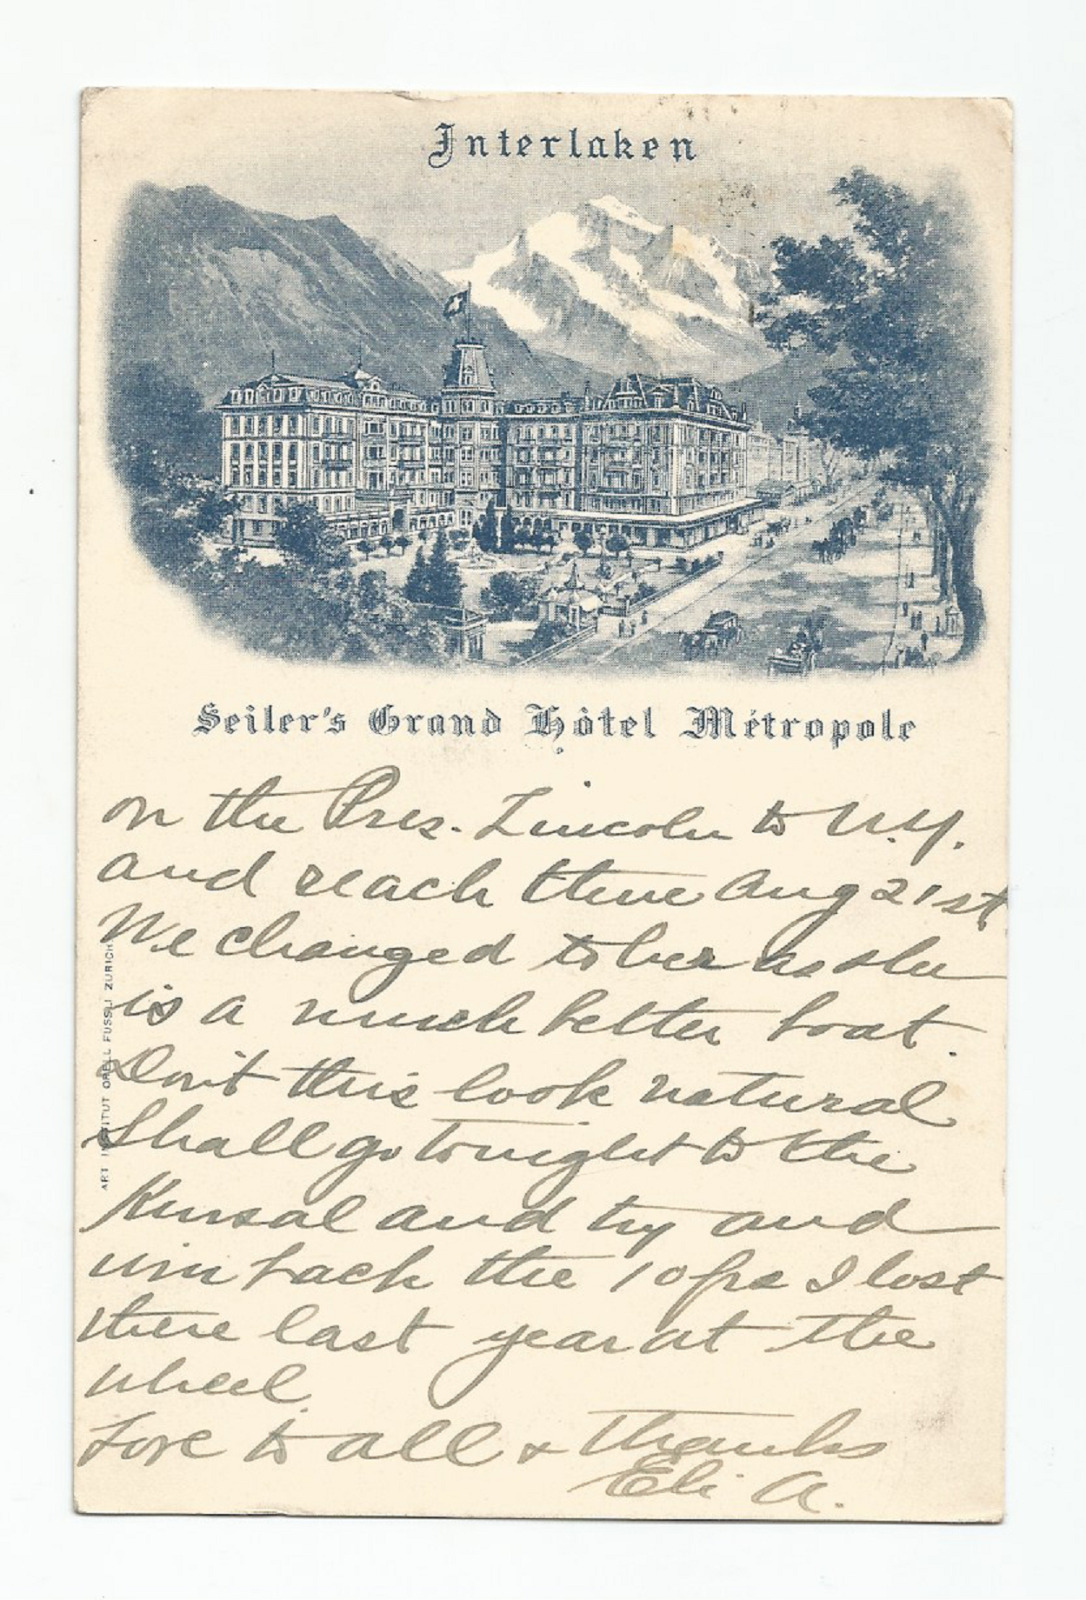 Interlaken
Seiler's Grand Hôtel Métropole
on the Pres. Lincoln to N.Y.
and reach there Aug 21st
We changed to her as she
is a much better boat.
Don't this look natural
Shall go tonight to the
Kursal and try and
win back the 10 frs I lost
there last year at the
wheel.
Love to all & thanks
Eli A.
ART INSTITUT ORELL FÜSSLI ZÜRICH